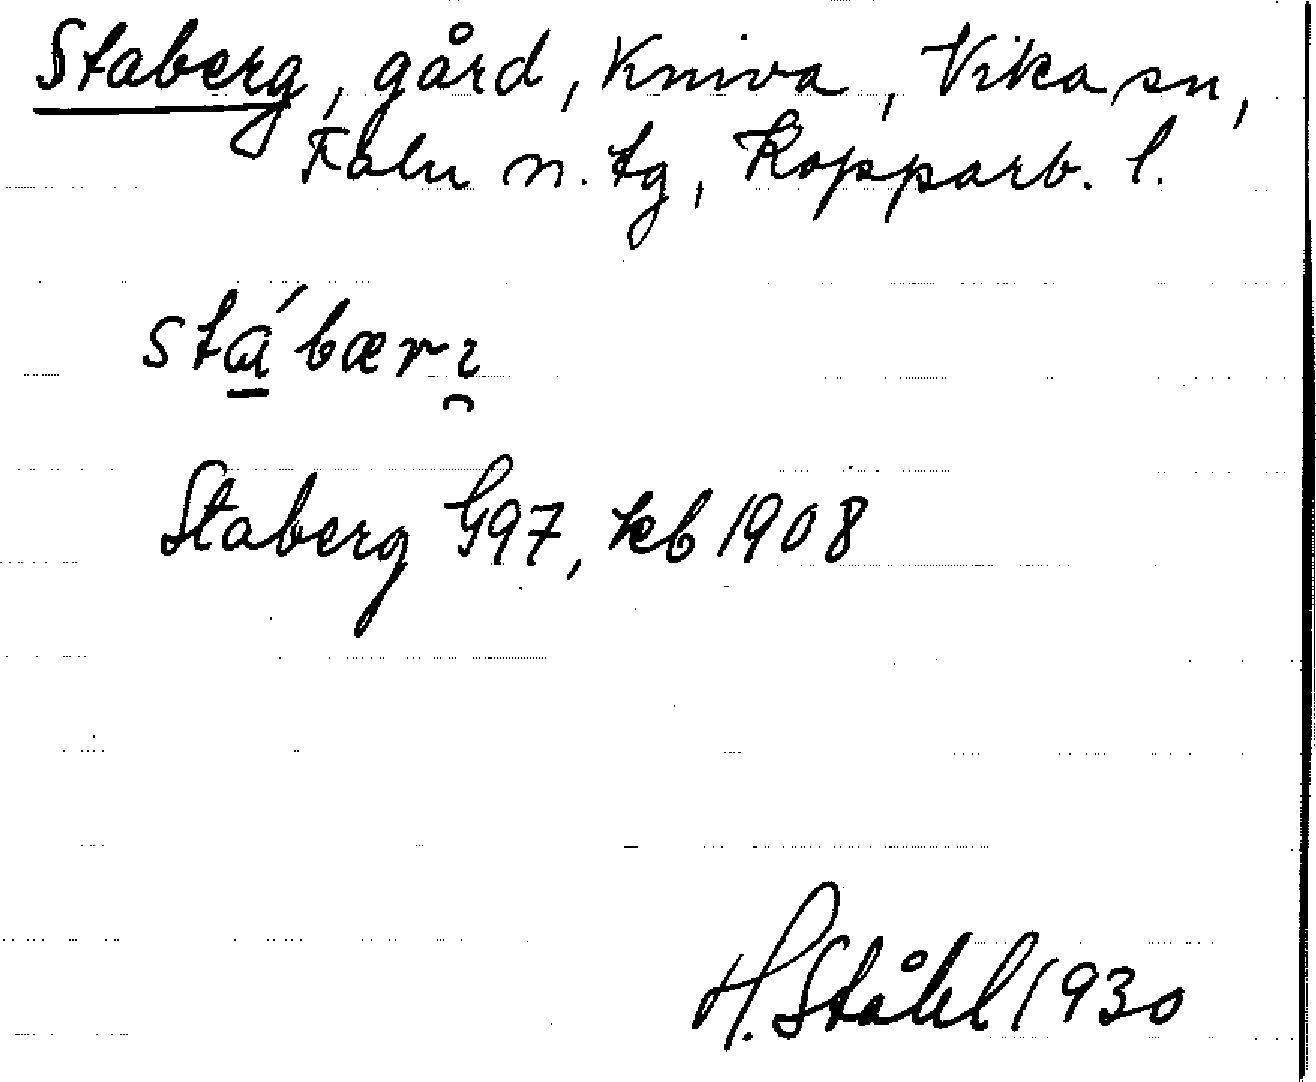 Staberg, gård, Kniva, Vika sn,
Falu n. tg, Kopparb. l.
stá̱bærı̯
Staberg G97, kb 1908
H. Ståhl 1930